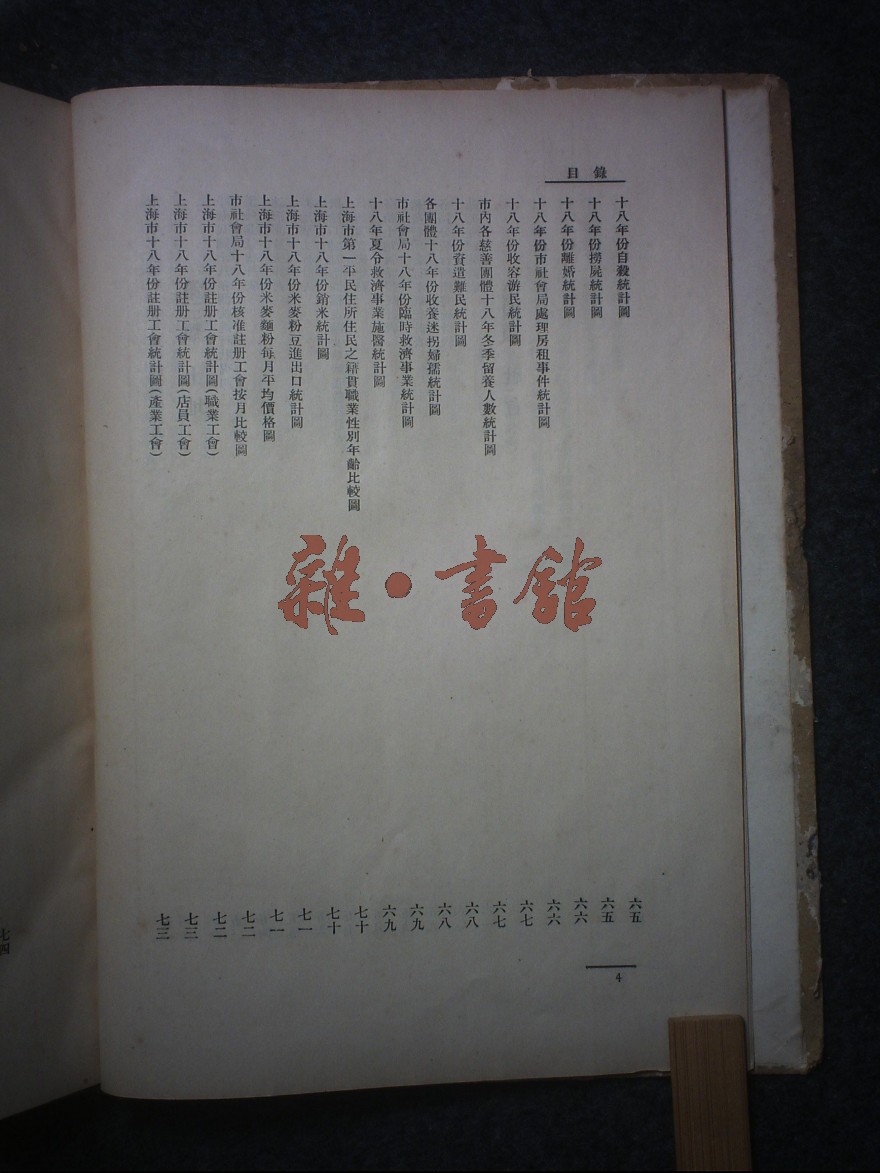 目錄
十八年份自殺統計圖 六五
十八年份撈屍統計圖 六五
十八年份離婚統計圖 六六
十八年份市社會局處理房租事件統計圖 六六
十八年份收容游民統計圖 六七
市內各慈善團體十八年冬季留養人數統計圖 六七
十八年份資遣難民統計圖 六八
各團體十八年份收養迷拐婦孺統計圖 六八
市社會局十八年份臨時救濟事業統計圖 六九
十八年夏令救濟事業施醫統計圖 六九
上海市第一平民住所住民之籍貫職業性別年齡比較圖 七十
上海市十八年份銷米統計圖 七十
上海市十八年份米麥粉豆進出口統計圖 七一
上海市十八年份米麥麵粉每月平均價格圖 七一
市社會局十八年份核准註册工會按月比較圖 七二
上海市十八年份註册工會統計圖(職業工會) 七二
上海市十八年份註册工會統計圖(店員工會) 七三
上海市十八年份註册工會統計圖(產業工會) 七三
4
七四
雜·書館